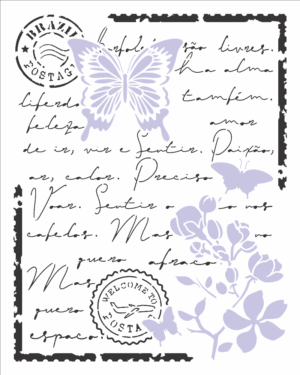 BRAZIL
POSTAG
são livres.
ha alma
também.
amor
de ir, vir e Sentir. Paixão,
ar, calor. Preciso
Voar. Sentir o o vos
cafelos. Mas
quero afraco.
Mas
quero
espaço
WELCOME TO
POSTAG